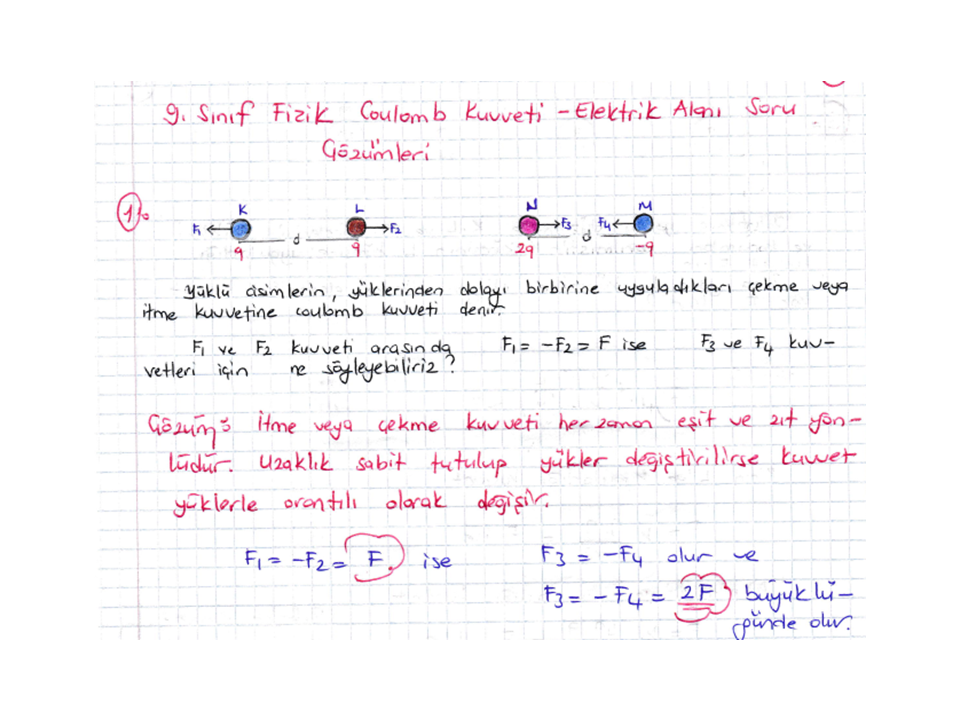 9. Sınıf Fizik Coulomb Kuvveti - Elektrik Alanı Soru
Gözümleri
1%
K L N M
F1 F2 F3 F4
d d
q q 2q -q
Yüklü cisimlerin, yüklerinden dolayı birbirine uyguladıkları çekme veya
itme kuvvetine coulomb kuvveti denir.
F1 ve F2 kuvveti arasında F1 = -F2 = F ise F3 ve F4 kuv-
vetleri için ne söyleyebiliriz?
Gözüm: İtme veya çekme kuvveti her zaman eşit ve zıt yön-
lüdür. Uzaklık sabit tutulup yükler değiştirilirse kuvvet
yüklerle orantılı olarak değişir.
F1 = -F2 = F ise F3 = -F4 olur ve
F3 = -F4 = 2F büyüklü-
günde olur.